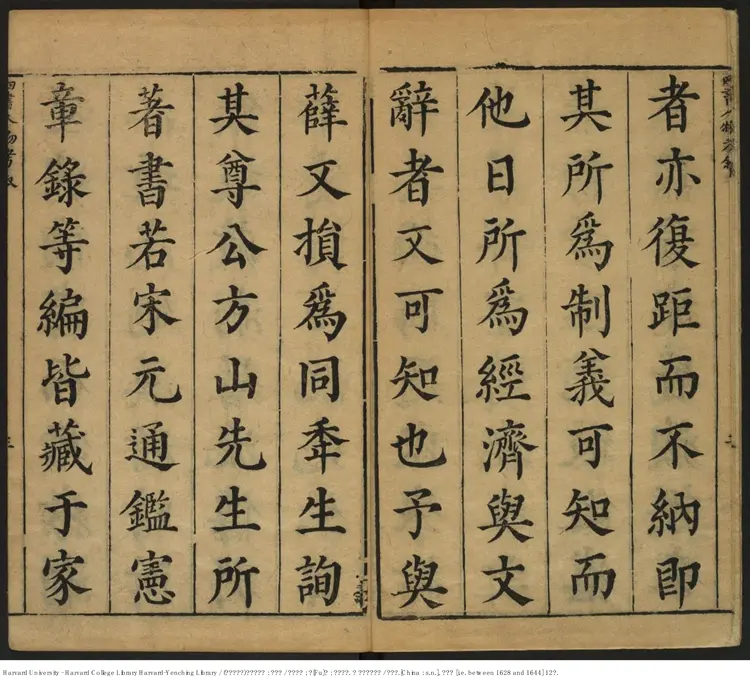 者亦復距而不納即
其所爲制義可知而
他日所爲經濟與文
辭者又可知也予與
薛又損爲同年生詢
其尊公方山先生所
著書若宋元通鑑憲
章錄等編皆藏于家
四書人物考叙
三
Harvard University - Harvard College Library Harvard-Yenching Library / (?????)????? : ??? / ???? : ?[Fu]? : ????. ? ?????? / ???.[China : s.n.], ??? [i.e. between 1628 and 1644] 12?.